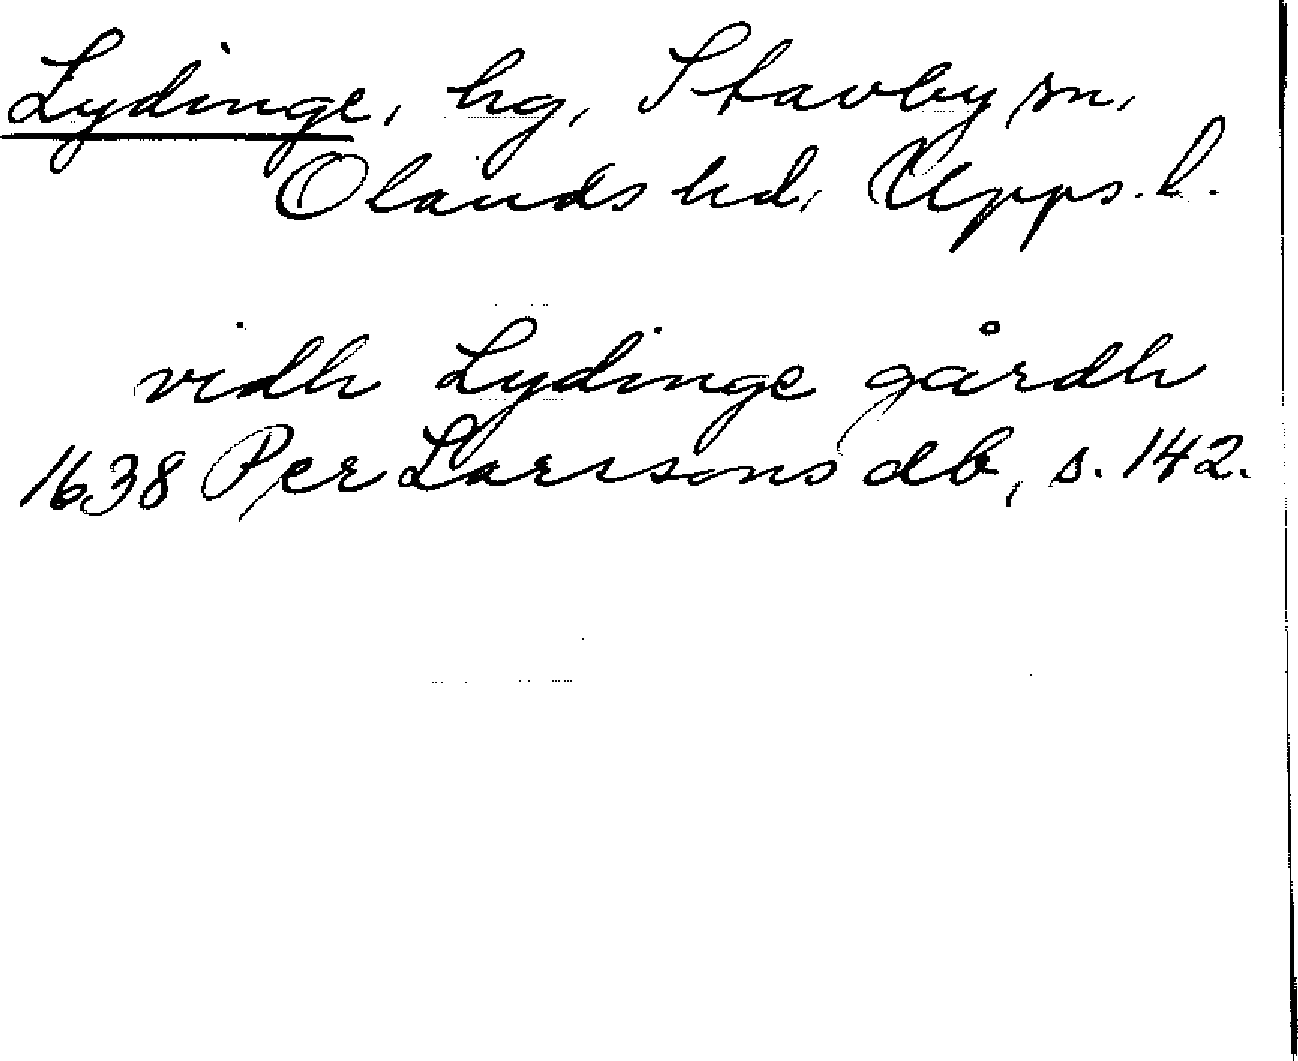 Lydinge, hg, Stavby sn,
Olands hd, Upps. l.
vidh Lydinge gårdh
1638 Per Larssons db, s. 142.